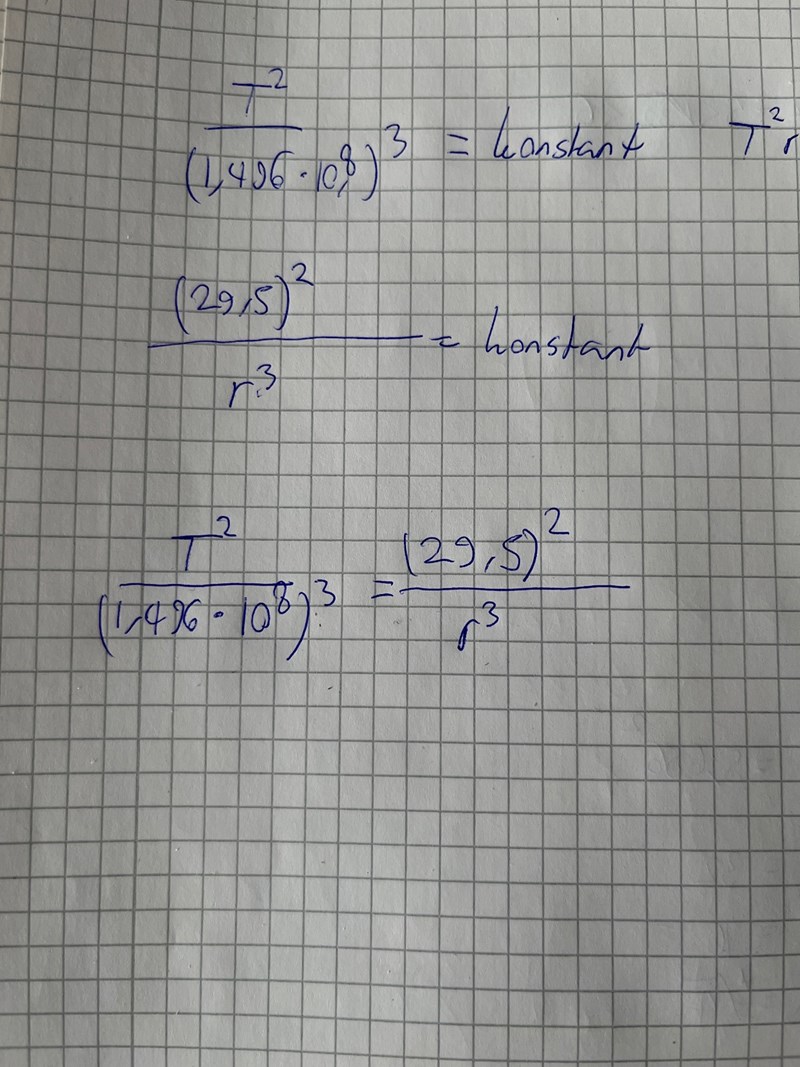 T² / (1,496 · 10⁸)³ = konstant T² r
(29,5)² / r³ = konstant
T² / (1,496 · 10⁸)³ = (29,5)² / r³